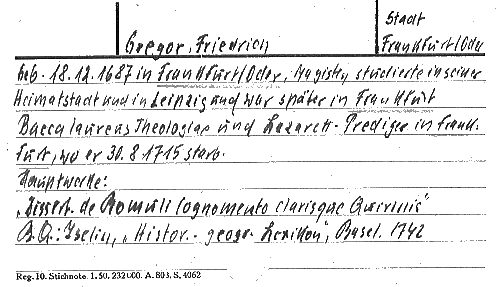 Stadt
Gregor, Friedrich Frankfurt/Oder
geb. 18.12.1687 in Frankfurt/Oder, Magister, studierte in seiner
Heimatstadt und in Leipzig und war später in Frankfurt
Baccalaureus Theologiae und Lazarett-Prediger in Frank-
furt, wo er 30.8.1715 starb.
Hauptwerke:
"Dissert. de Romuli cognomento clarisque Quirinis"
B.Q.: Iselin, "Histor.-geogr. Lexikon", Basel. 1742
Reg. 10. Stichnote. 1. 50. 232000. A. 803. S. 4062